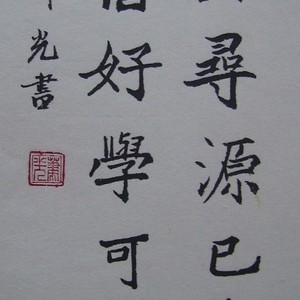 尋源已
好學可
光書